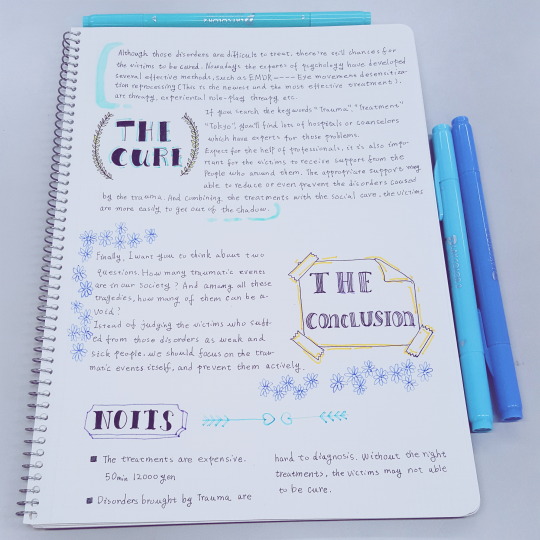 Although those disorders are difficult to treat, there're still chances for
the victims to be cured. Nowadays the experts of psychology have developed
several effective methods, such as EMDR---- Eye movement desensitiza-
tion reprocessing (This is the newest and the most effective treatment),
art therapy, experiental role-play therapy etc.
THE
CURE
If you search the keywords "Trauma", "Treatment"
"Tokyo", you'll find lots of hospitals or counselors
which have experts for those problems.
Expect for the help of professionals, it is also impor-
tant for the victims to receive support from the
People who around them. The appropriate support may
able to reduce or even prevent the disorders caused
by the trauma. And combining the treatments with the social care, the victims
are more easily to get out of the shadow.
Finally, I want you to think about two
questions. How many traumatic events
are in our society? And among all these
tragedies, how many of them can be a-
void?
Istead of judging the victims who suff-
ed from those disorders as weak and
sick people, we should focus on the trau-
matic events itself, and prevent them actively.
THE
CONCLUSION
NOITS
The treatments are expensive.
50min 12000 yen
Disorders brought by Trauma are
hard to diagnosis. Without the right
treatments, the victims may not able
to be cure.